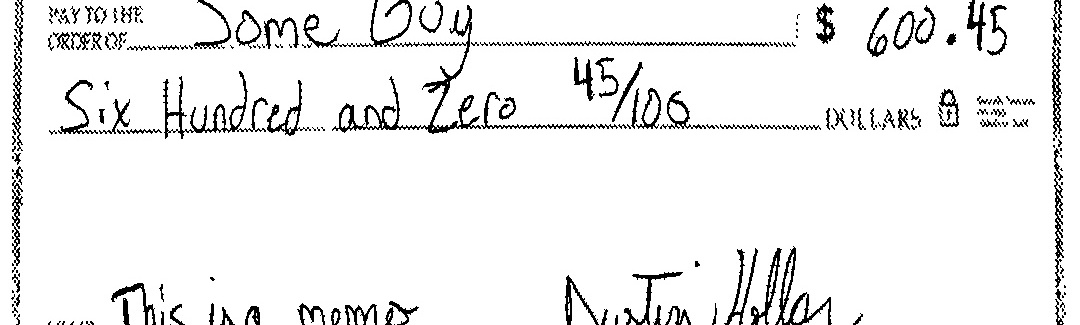 PAY TO THE
ORDER OF Some Guy $ 600.45
Six Hundred and Zero 45/100 DOLLARS
This is a memo Dustin